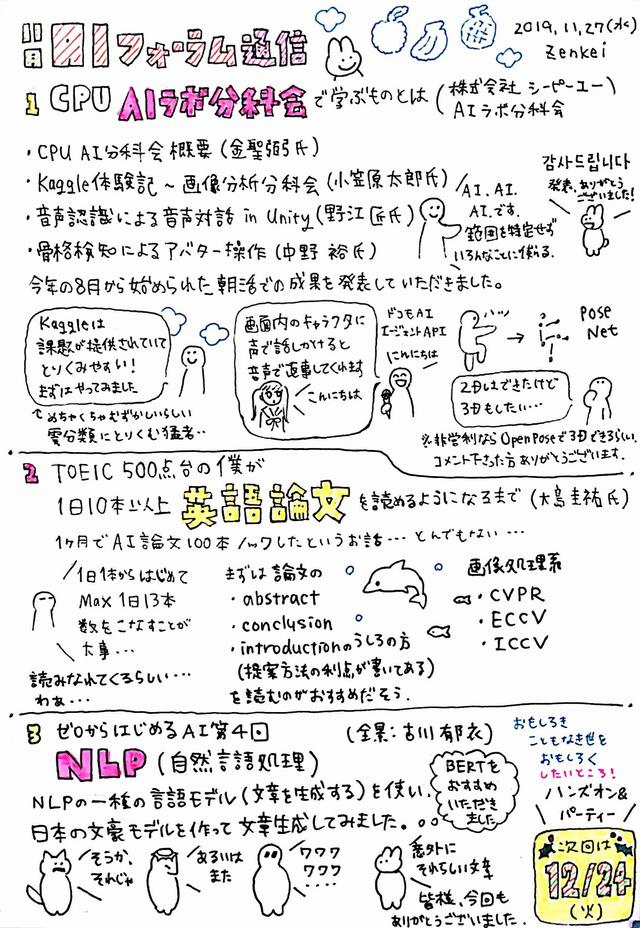 11月 AIフォーラム通信
2019.11.27(水)
Zenkei
1 CPU AIラボ分科会で学ぶものとは (株式会社 シーピーユー)
AIラボ分科会
・CPU AI分科会 概要 (金聖弼氏)
・Kaggle体験記 ~ 画像分析分科会 (小笠原太郎氏)
・音声認識による音声対話 in Unity (野江 匠氏)
・骨格検知によるアバター操作 (中野 裕氏)
AI. AI.
AI.です.
範囲を特定せず
いろんなことに使える.
감사드립니다
発表、ありがとう
ございました!
今年の8月から始められた朝活での成果を発表していただきました。
Kaggleは
課題が提供されていて
とりくみやすい!
まずはやってみました
めちゃくちゃむずかしいらしい
雲分類にとりくむ猛者..
画面内のキャラクタに
声で話しかけると
音声で返事してくれます
こんにちは
ドコモAI
エージェントAPI
にんにちは
ハッ
Pose
Net
2Dはできたけど
3Dもしたい…
※非営利ならOpenPoseで3Dできるらしい.
コメント下さった方ありがとうございます.
2 TOEIC 500点台の僕が
1日10本以上 英語論文を読めるようになるまで (大島圭祐氏)
1ヶ月でAI論文100本ノックしたというお話… とんでもない…
1日1本からはじめて
Max 1日13本
数をこなすことが
大事…
読みなれてくるらしい…
わぁ…
まずは論文の
・abstract
・conclusion
・introductionのうしろの方
(提案方法の利点が書いてある)
を読むのがおすすめだそう.
画像処理系
・CVPR
・ECCV
・ICCV
3 ゼロからはじめるAI第4回
(全景:古川郁衣)
NLP (自然言語処理)
NLPの一種の言語モデル(文章を生成する)を使い、
日本の文豪モデルを作って文章生成してみました。
BERTを
おすすめ
いただき
ました
おもしろき
こともなき世を
おもしろく
したいところ!
ハンズオン&
パーティー
次回は
12/24
(火)
そうか、
それじゃ
あるいは
また
ワワワ
ワワワ
....
意外に
それらしい文章
皆様、今回も
ありがとうございました.